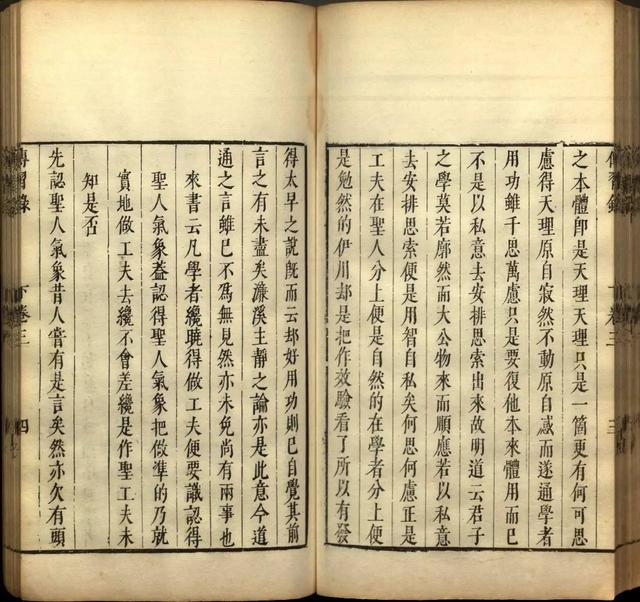 之本體即是天理天理只是一箇更有何可思
慮得天理原自寂然不動原自感而遂通學者
用功雖千思萬慮只是要復他本來體用而已
不是以私意去安排思索出來故明道云君子
之學莫若廓然而大公物來而順應若以私意
去安排思索便是用智自私矣何思何慮正是
工夫在聖人分上便是自然的在學者分上便
是勉然的伊川却是把作效驗看了所以有發
得太早之說旣而云却好用功則已自覺其前
言之有未盡矣濂溪主靜之論亦是此意今道
通之言雖已不爲無見然亦未免尚有兩事也
來書云凡學者纔曉得做工夫便要識認得
聖人氣象葢認得聖人氣象把做準的乃就
實地做工夫去纔不會差纔是作聖工夫未
知是否
先認聖人氣象昔人嘗有是言矣然亦欠有頭
傳習錄 下卷三 四